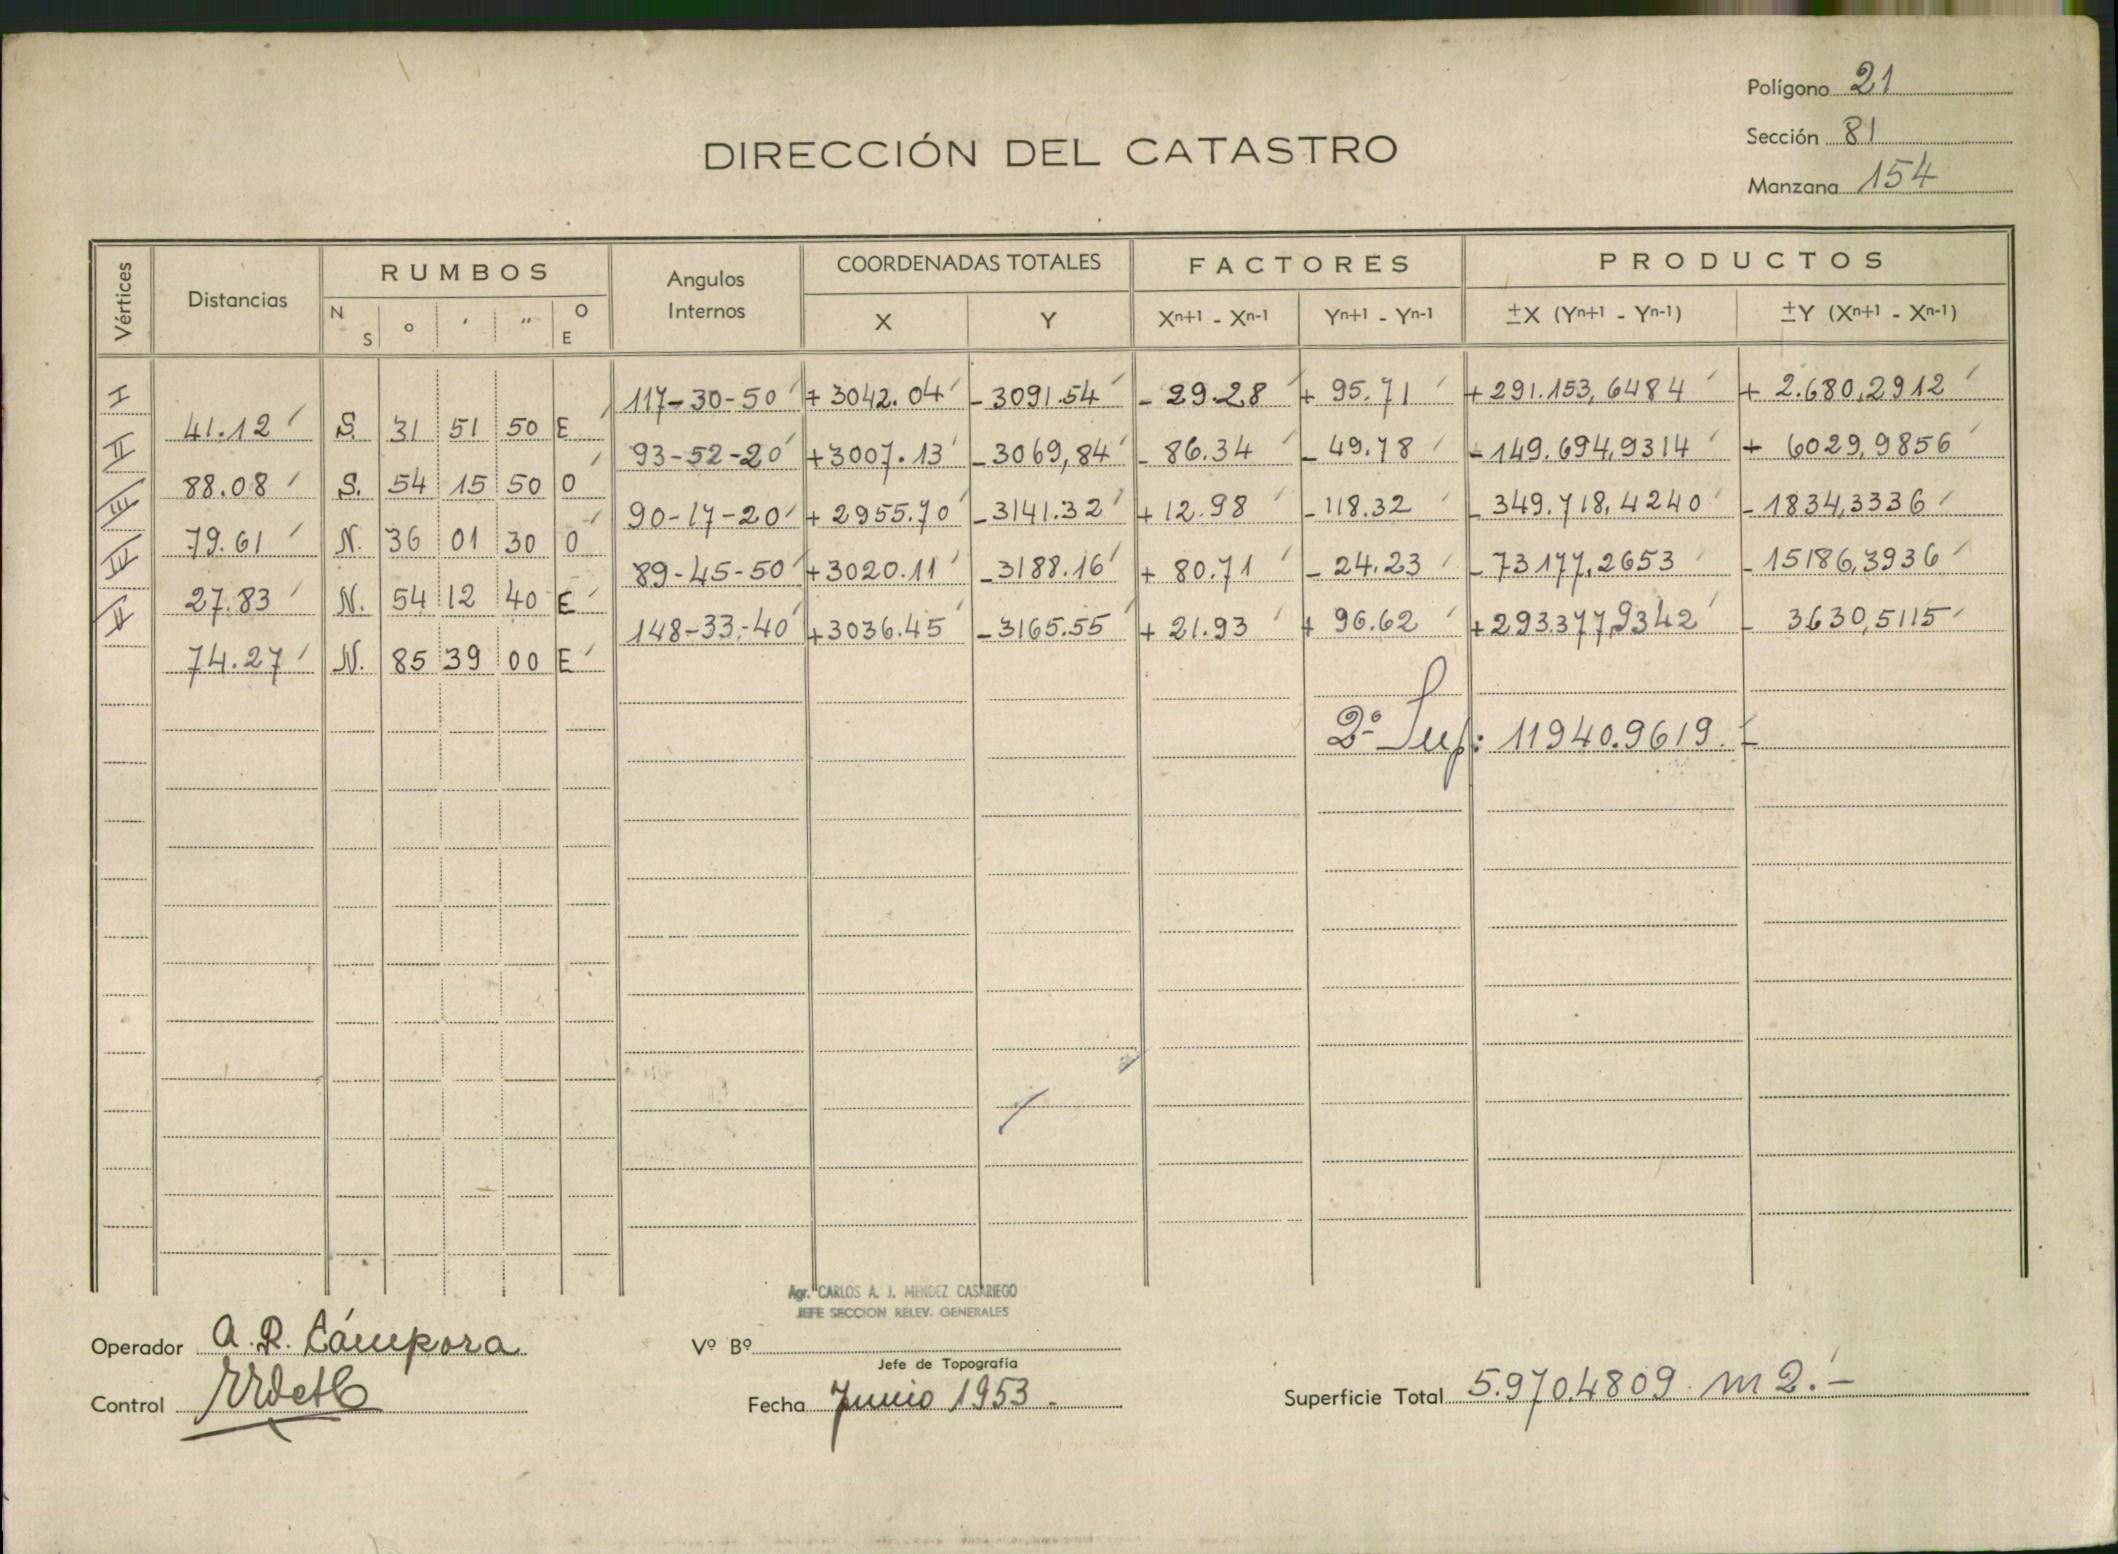 Polígono 21
Sección 81
Manzana 154
DIRECCIÓN DEL CATASTRO
Vértices Distancias RUMBOS Angulos Internos COORDENADAS TOTALES FACTORES PRODUCTOS
N S ° ' " O E X Y Xn+1 - Xn-1 Yn+1 - Yn-1 ±X (Yn+1 - Yn-1) ±Y (Xn+1 - Xn-1)
I 117-30-50 +3042.04 -3091.54 -29.28 +95.71 +291.153,6484 +2.680,2912
41.12 S. 31 51 50 E
II 93-52-20 +3007.13 -3069,84 -86.34 -49.78 -149.694,9314 +6029,9856
88.08 S. 54 15 50 O
III 90-17-20 +2955.70 -3141.32 +12.98 -118.32 -349.718,4240 -1834,3336
79.61 N. 36 01 30 O
IV 89-45-50 +3020.11 -3188.16 +80.71 -24.23 -73177,2653 -15186,3936
27.83 N. 54 12 40 E
V 148-33-40 +3036.45 -3165.55 +21.93 +96.62 +293.377,9342 -3630,5115
74.27 N. 85 39 00 E
2ª Sup: 11940.9619.-
Agr. CARLOS A. J. MENDEZ CASARIEGO
JEFE SECCION RELEV. GENERALES
Operador A. R. Cámpora
Vº Bº
Jefe de Topografía
Control
Fecha Junio 1953.
Superficie Total 5.970.4809 m2.-